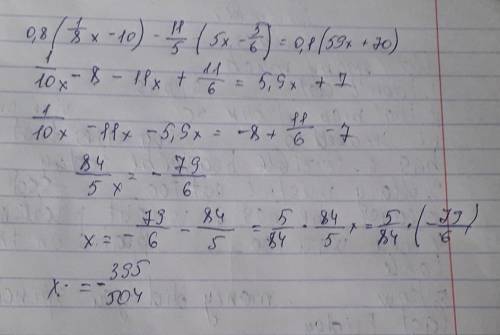 0,8(1/8x-10) - 11/5(5x-5/6) = 0,1(59x+70)
1/10x - 8 - 11x + 11/6 = 5,9x + 7
1/10x - 11x - 5,9x = -8 + 11/6 - 7
84/5x = - 79/6
x = - 79/6 - 84/5 = 5/84 · 84/5x = 5/84 · (-79/6)
x· = - 395/504